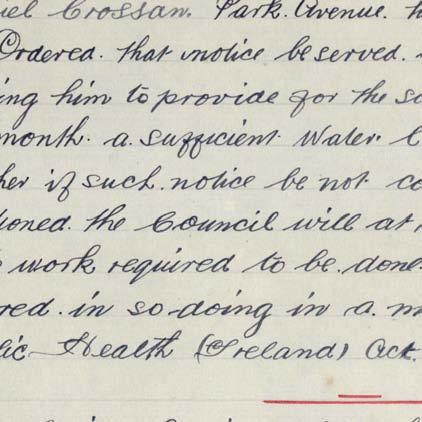 iel Crossan. Park. Avenue.
Ordered. that notice be served.
ing him to provide for the
month. a. sufficient Water.
her if such. notice be not
ioned. the Council will at
work required to be. done.
red. in so doing in a.
lic Health (Ireland) Act.